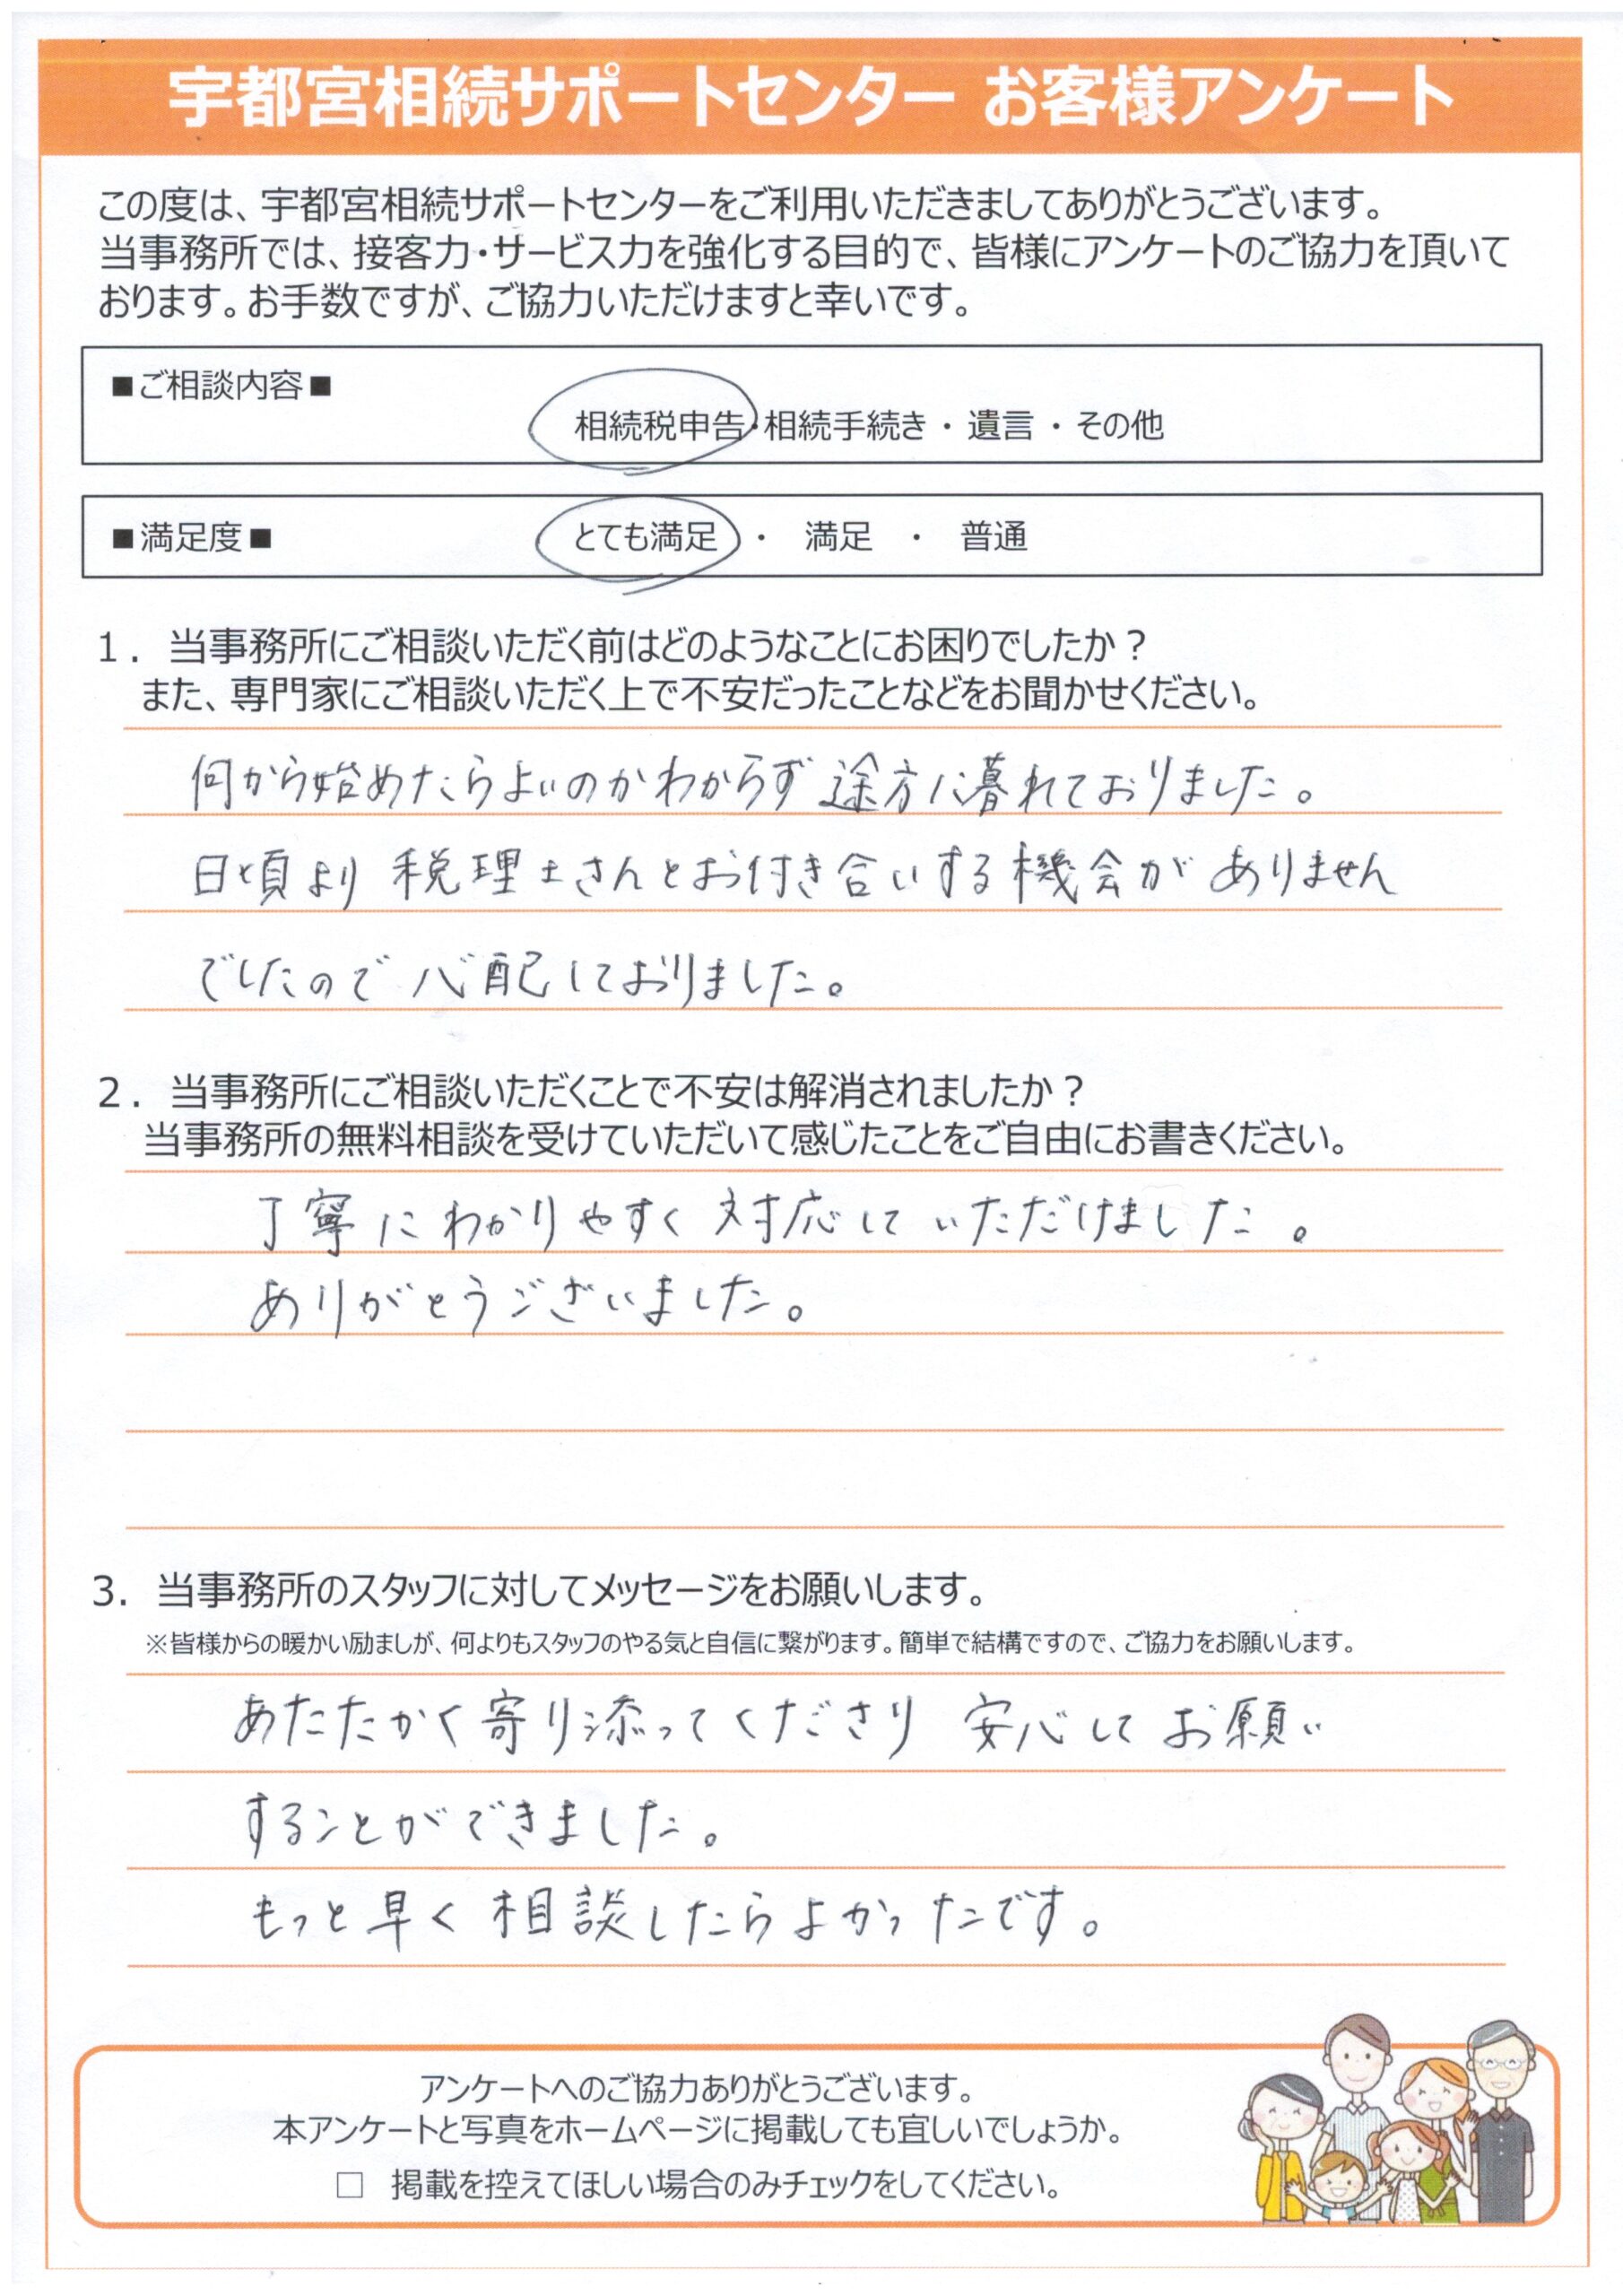 宇都宮相続サポートセンター お客様アンケート
この度は、宇都宮相続サポートセンターをご利用いただきましてありがとうございます。
当事務所では、接客力・サービス力を強化する目的で、皆様にアンケートのご協力を頂いて
おります。お手数ですが、ご協力いただけますと幸いです。
■ご相談内容■
相続税申告・相続手続き ・ 遺言 ・ その他
■満足度■ とても満足 ・ 満足 ・ 普通
1. 当事務所にご相談いただく前はどのようなことにお困りでしたか？
また、専門家にご相談いただく上で不安だったことなどをお聞かせください。
何から始めたらよいのかわからず途方に暮れておりました。
日頃より税理士さんとお付き合いする機会がありません
でしたので心配しておりました。
2. 当事務所にご相談いただくことで不安は解消されましたか？
当事務所の無料相談を受けていただいて感じたことをご自由にお書きください。
丁寧にわかりやすく対応していただけました。
ありがとうございました。
3. 当事務所のスタッフに対してメッセージをお願いします。
※皆様からの暖かい励ましが、何よりもスタッフのやる気と自信に繋がります。簡単で結構ですので、ご協力をお願いします。
あたたかく寄り添ってくださり 安心してお願い
することができました。
もっと早く相談したらよかったです。
アンケートへのご協力ありがとうございます。
本アンケートと写真をホームページに掲載しても宜しいでしょうか。
□ 掲載を控えてほしい場合のみチェックをしてください。